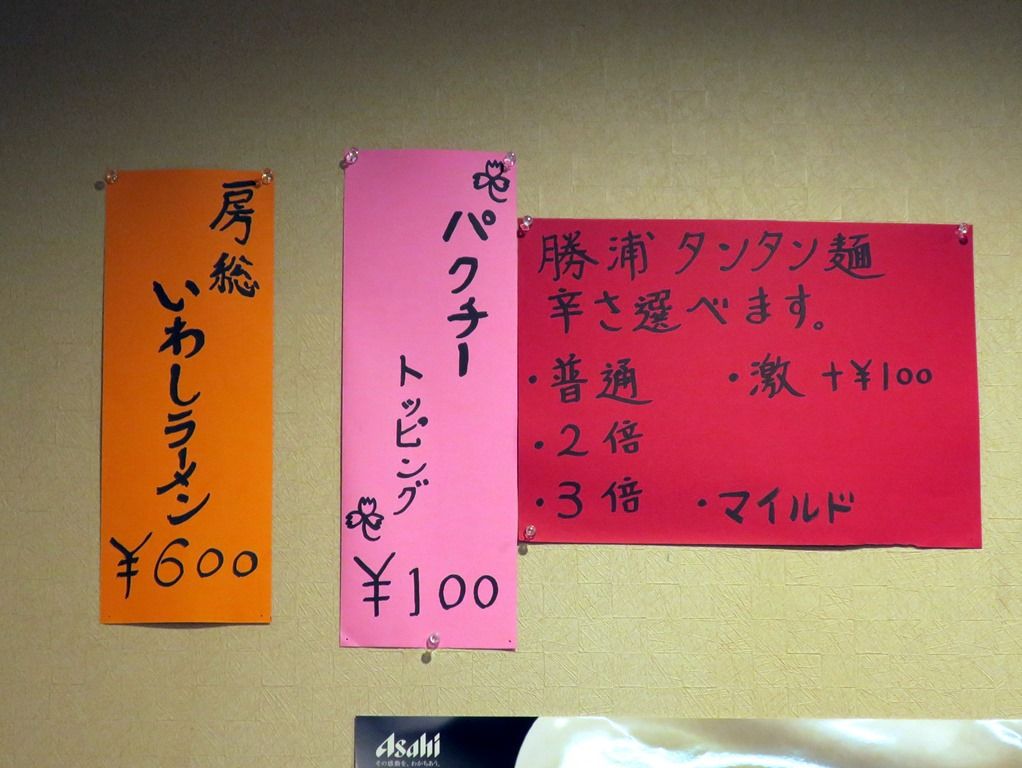 房総
いわしラーメン
¥600
パクチー
トッピング
¥100
勝浦 タンタン麺
辛さ選べます。
・普通 ・激 +¥100
・2倍
・3倍 ・マイルド
Asahi
その感動を、わかちあう。